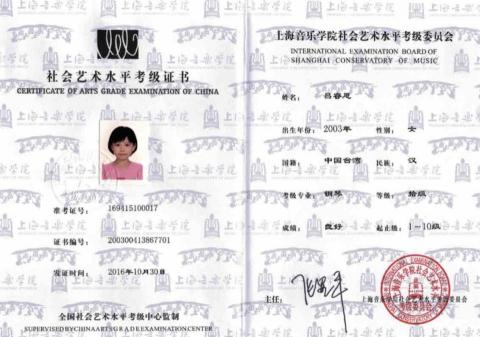 社会艺术水平考级证书
CERTIFICATE OF ARTS GRADE EXAMINATION OF CHINA
准考证号: 169415100017
证书编号: 200300413867701
发证时间: 2016年10月30日
全国社会艺术水平考级中心监制
SUPERVISED BY CHINA ARTS GRADE EXAMINATION CENTER
上海音乐学院社会艺术水平考级委员会
INTERNATIONAL EXAMINATION BOARD OF
SHANGHAI CONSERVATORY OF MUSIC
姓名: 吕睿思
出生年份: 2003年 性别: 女
国籍: 中国台湾 民族: 汉
考级专业: 钢琴 等级: 拾级
成绩: 良好 起止级: 1~10级
主任:
上海音乐学院社会艺术水平考级委员会